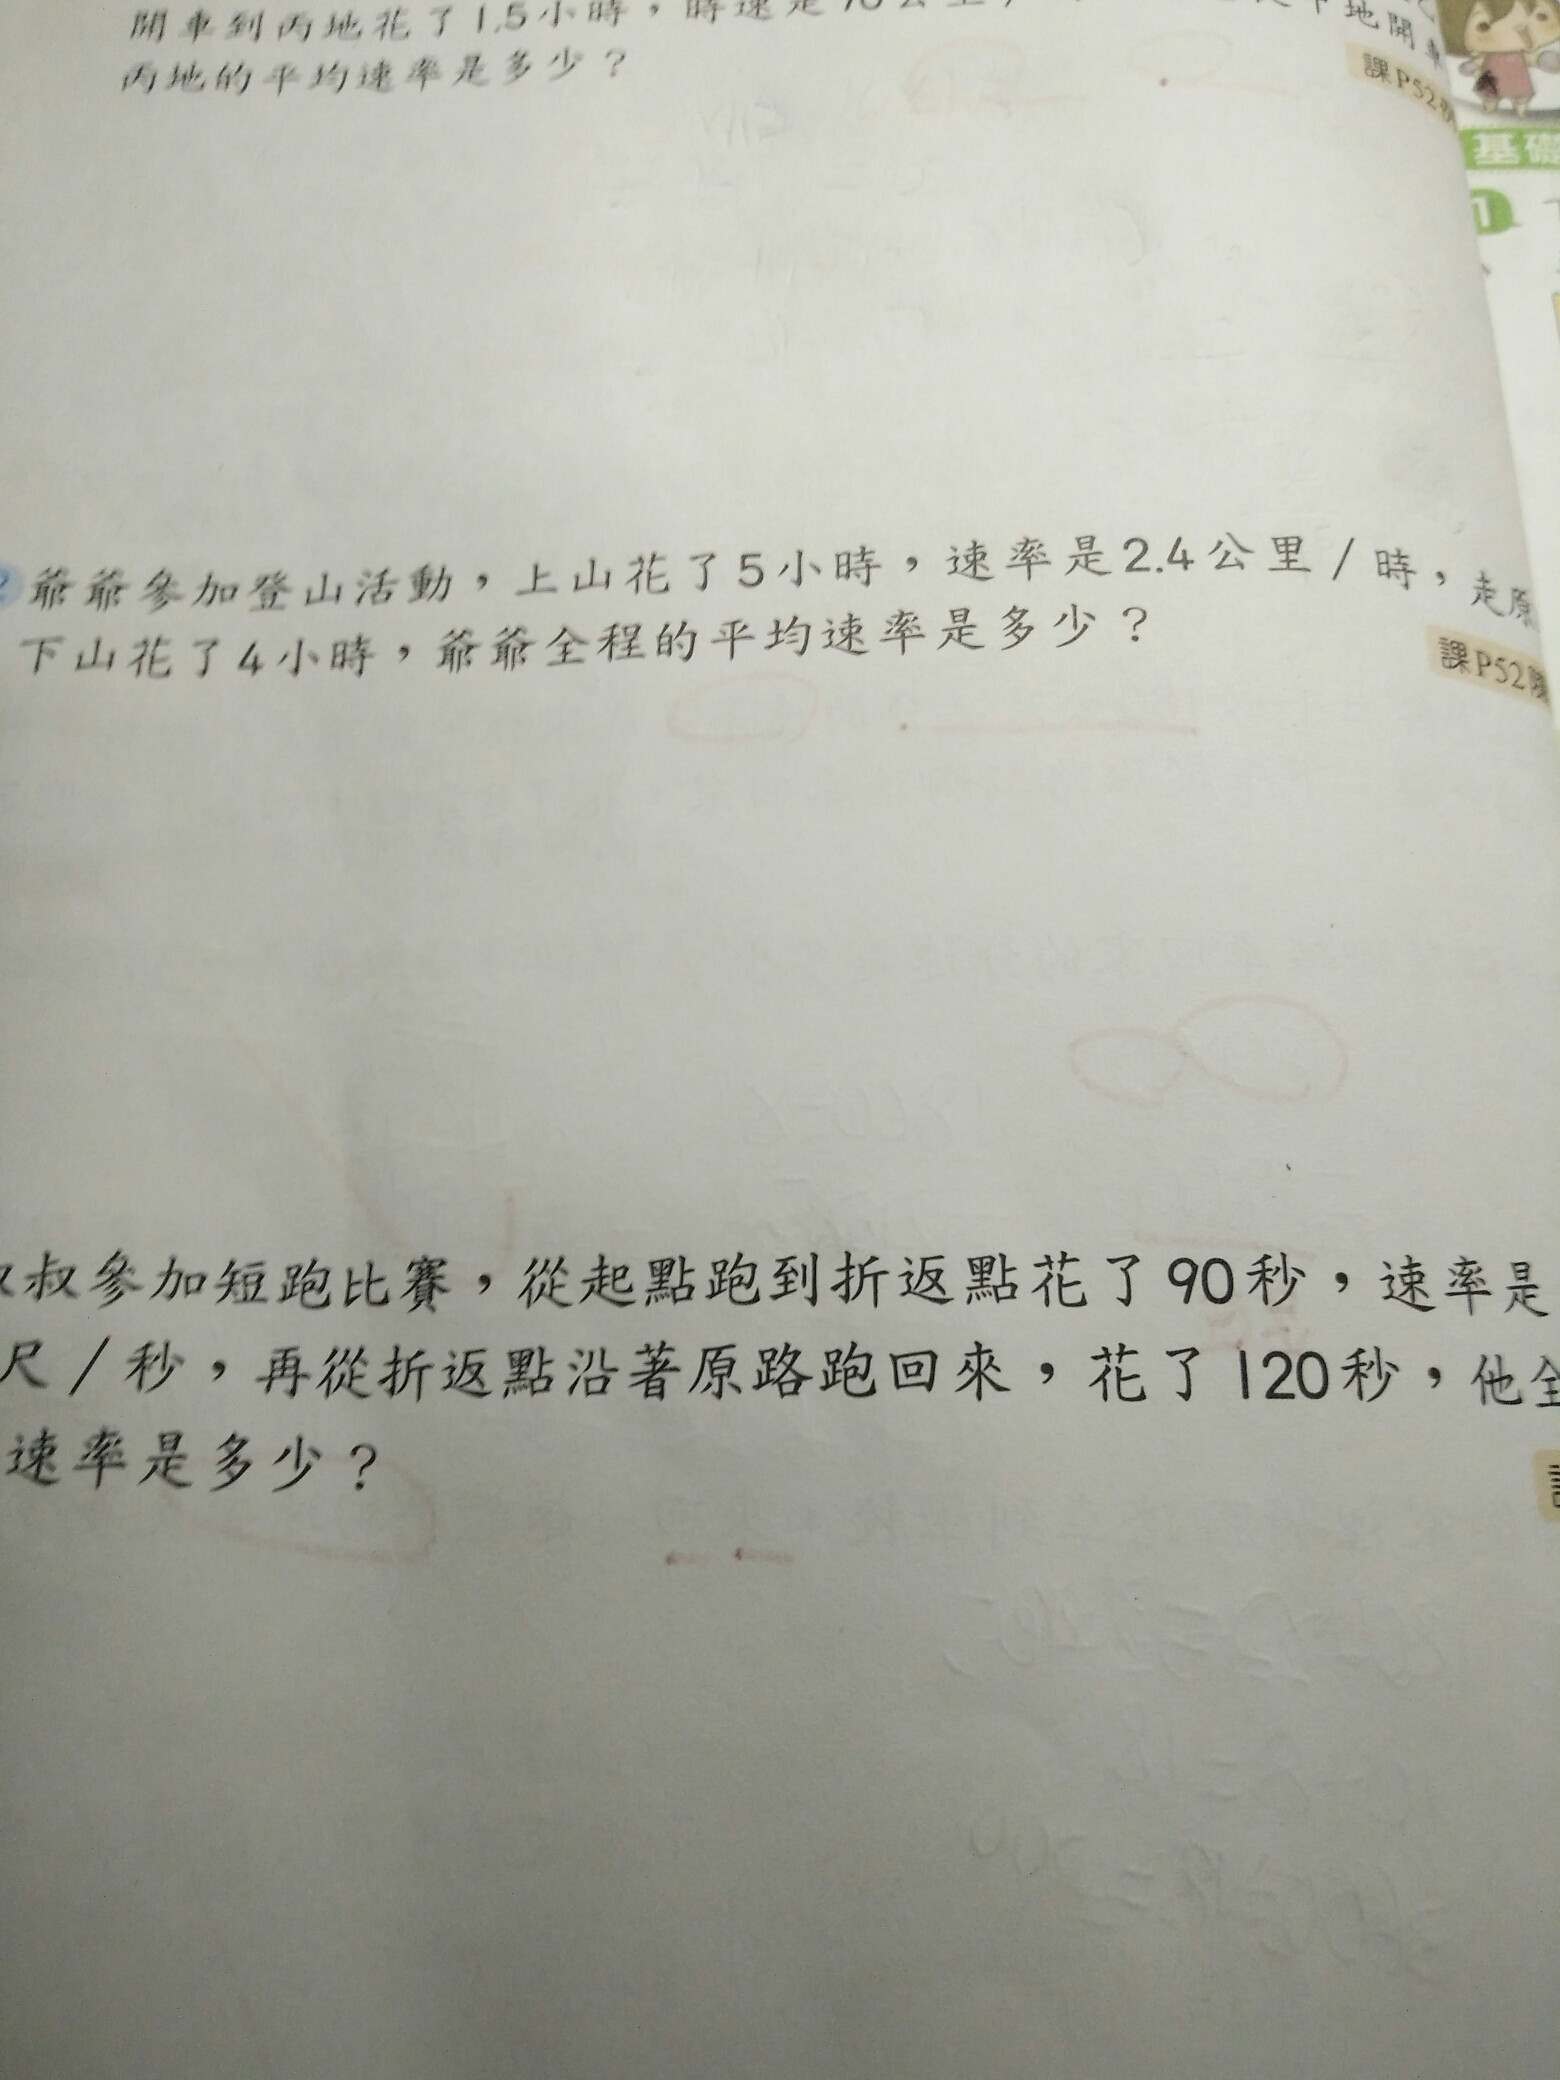 開車到丙地花了1.5小時，時速是70公里
地開車
丙地的平均速率是多少？
課P52
基礎
1
爺爺參加登山活動，上山花了5小時，速率是2.4公里／時，走原
下山花了4小時，爺爺全程的平均速率是多少？
課P52
叔參加短跑比賽，從起點跑到折返點花了90秒，速率是
尺／秒，再從折返點沿著原路跑回來，花了120秒，他全
速率是多少？